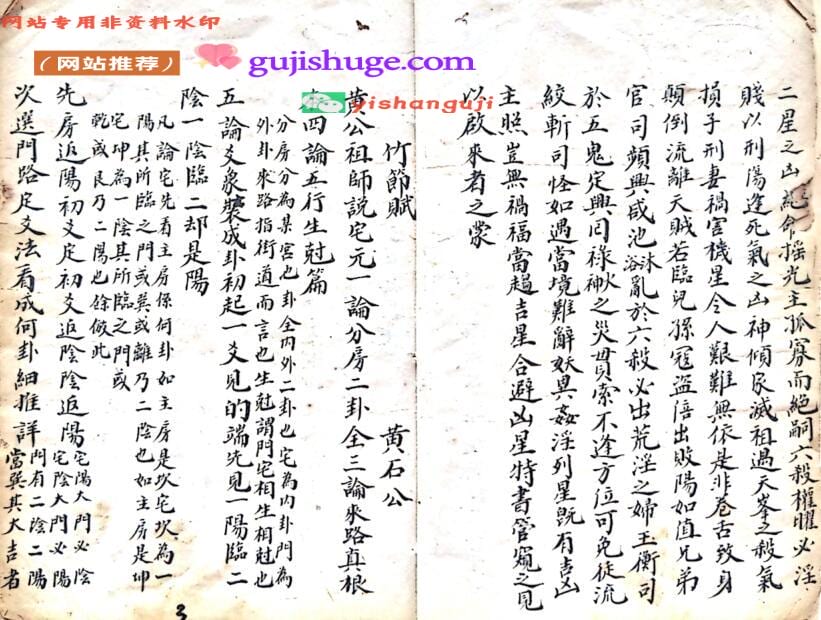 网站专用非资料水印
（网站推荐）
gujishuge.com
yishanguji
二星之凶絶命揺光主孤寡而絶嗣六殺權曜必淫
賤以刑陽逢死氣之凶神傾家滅祖過天峯之殺氣
損子刑妻禍宮機星令人艱難無依是非卷舌致身
顛倒流離天賊若臨兒孫寇盜陪出敗陽如值兄弟
官司頻興咸池沐浴亂於六殺必出荒淫之婦玉衡司
於五鬼定興回祿神火之災貫索不逢方位可免徒流
絞斬司怪如遇當境難辭妖異姦淫列星既有吉凶
主照豈無禍福當趨吉星合避凶星特書管窺之見
以啟來者之蒙
竹節賦 黄石公
黄公祖師説宅元一論分房二卦全三論來路真根
四論五行生尅篇
分房分為某宮也卦全内外二卦也宅為内卦門為
外卦來路指街道而言也生尅謂門宅相生相尅也
五論爻象裝成卦初起一爻見的端先見一陽臨二
陰一陰臨二却是陽
凡論宅先看主房係何卦如主房是坎宅坎為一
陽其所臨之門或巽或離乃二陰也如主房是坤
宅坤為一陰其所臨之門或
乾或艮乃二陽也餘倣此
先房返陽初爻定初爻返陰陰返陽宅陽大門必陰
宅陰大門必陽
次選門路定爻法看成何卦細推詳門有二陰二陽
當巽其大吉者
3